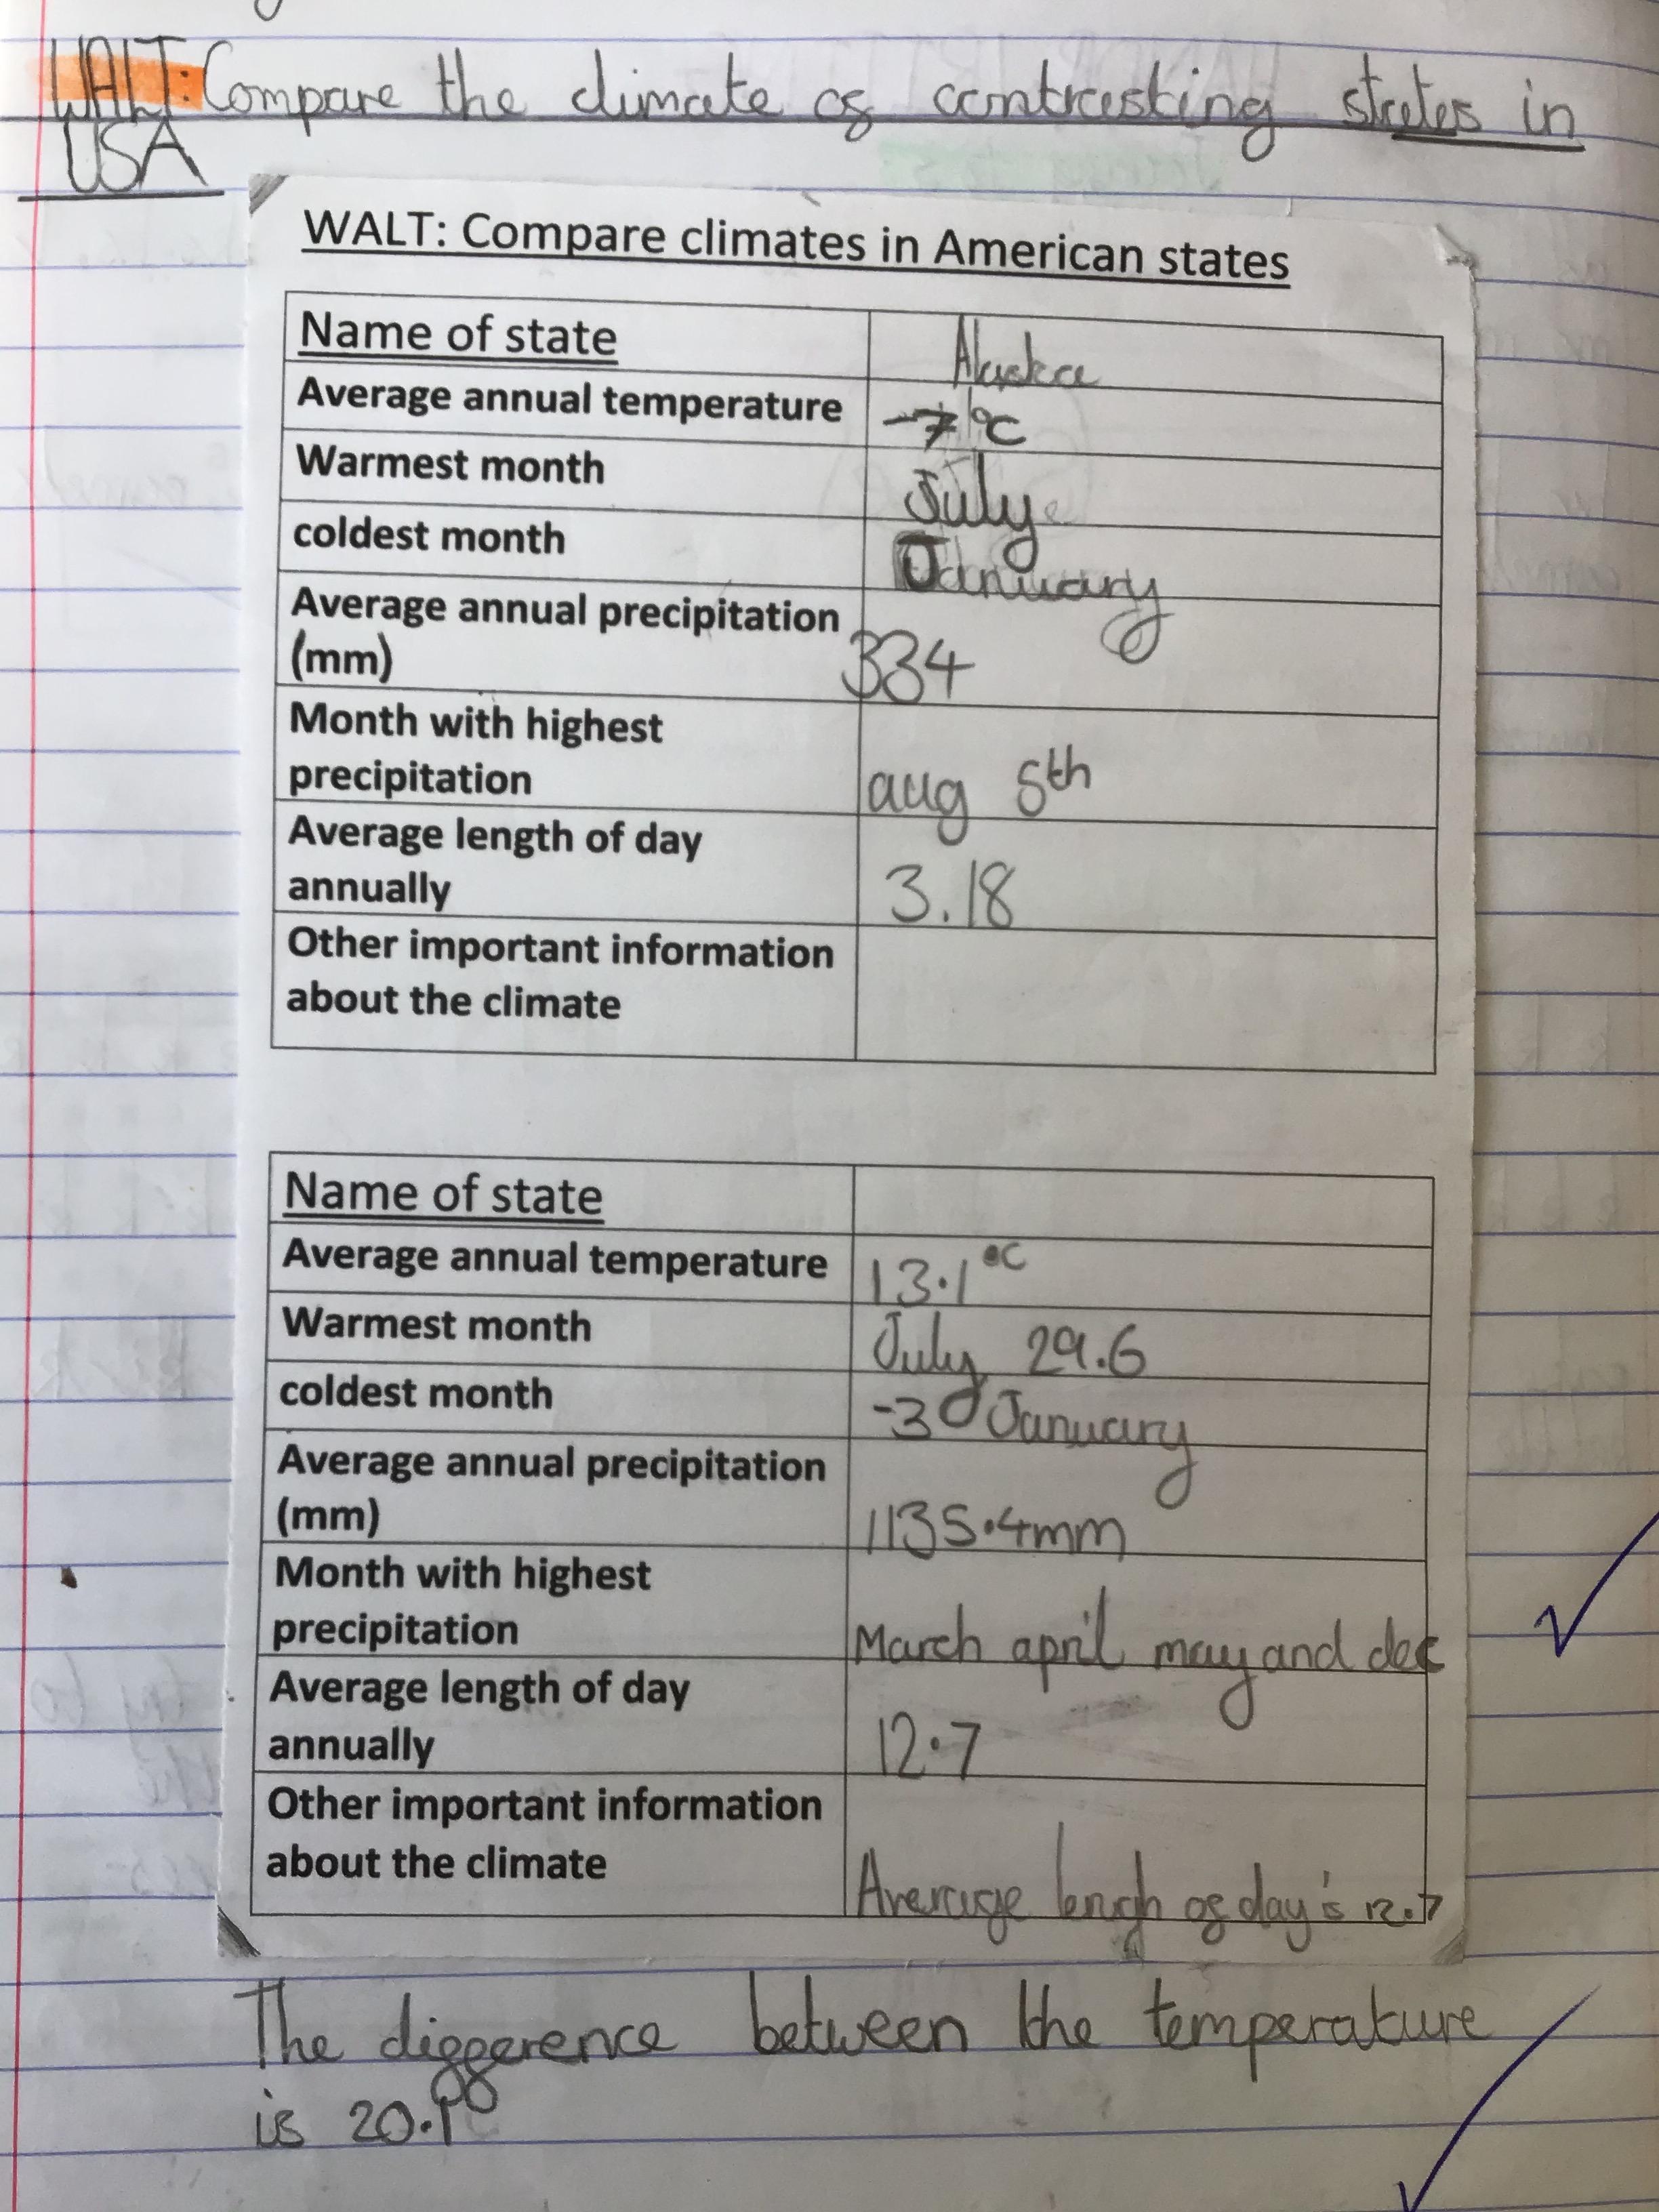 WALT: Compare the climate of contrasting states in
USA
WALT: Compare climates in American states
Name of state Alaska
Average annual temperature -7°C
Warmest month July
coldest month January
Average annual precipitation
(mm) 334
Month with highest
precipitation aug 5th
Average length of day
annually 3.18
Other important information
about the climate
Name of state
Average annual temperature 13.1°C
Warmest month July 29.6
coldest month -3° January
Average annual precipitation
(mm) 1135.4mm
Month with highest
precipitation March april may and dec
Average length of day
annually 12.7
Other important information
about the climate Average lengh of day's 12.7
The difference between the temperature
is 20.1°